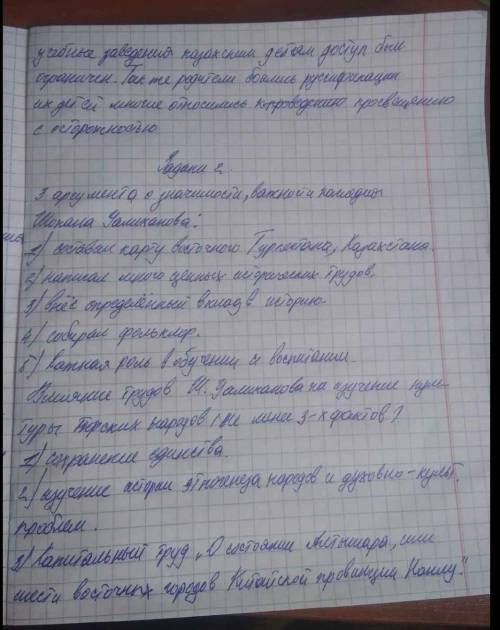 учебные заведения казахским детям доступ был
ограничен. Так же родители боялись русификации
их детей многие относились к проведению просвещению
с осторожностью
Задани 2.
3 аргумента о значимости, важности
Шокана Уалиханова:
1) составил карту восточного Туркестана, Казахстана.
2) написал много ценных исторических трудов.
3) внёс определённый вклад в историю.
4) собирал фольклор.
5) важная роль в обучении и воспитании
Влияние трудов Ш. Уалиханова на изучение куль-
туры тюрских народов (не мене 3-х фактов)
1) сохранение единства.
2) изучение истории этногенеза народов и духовно-культ.
проблем.
3) Капитальный труд „О состоянии Алтышара, или
шести восточных городов Китайской провинции Нанлу."